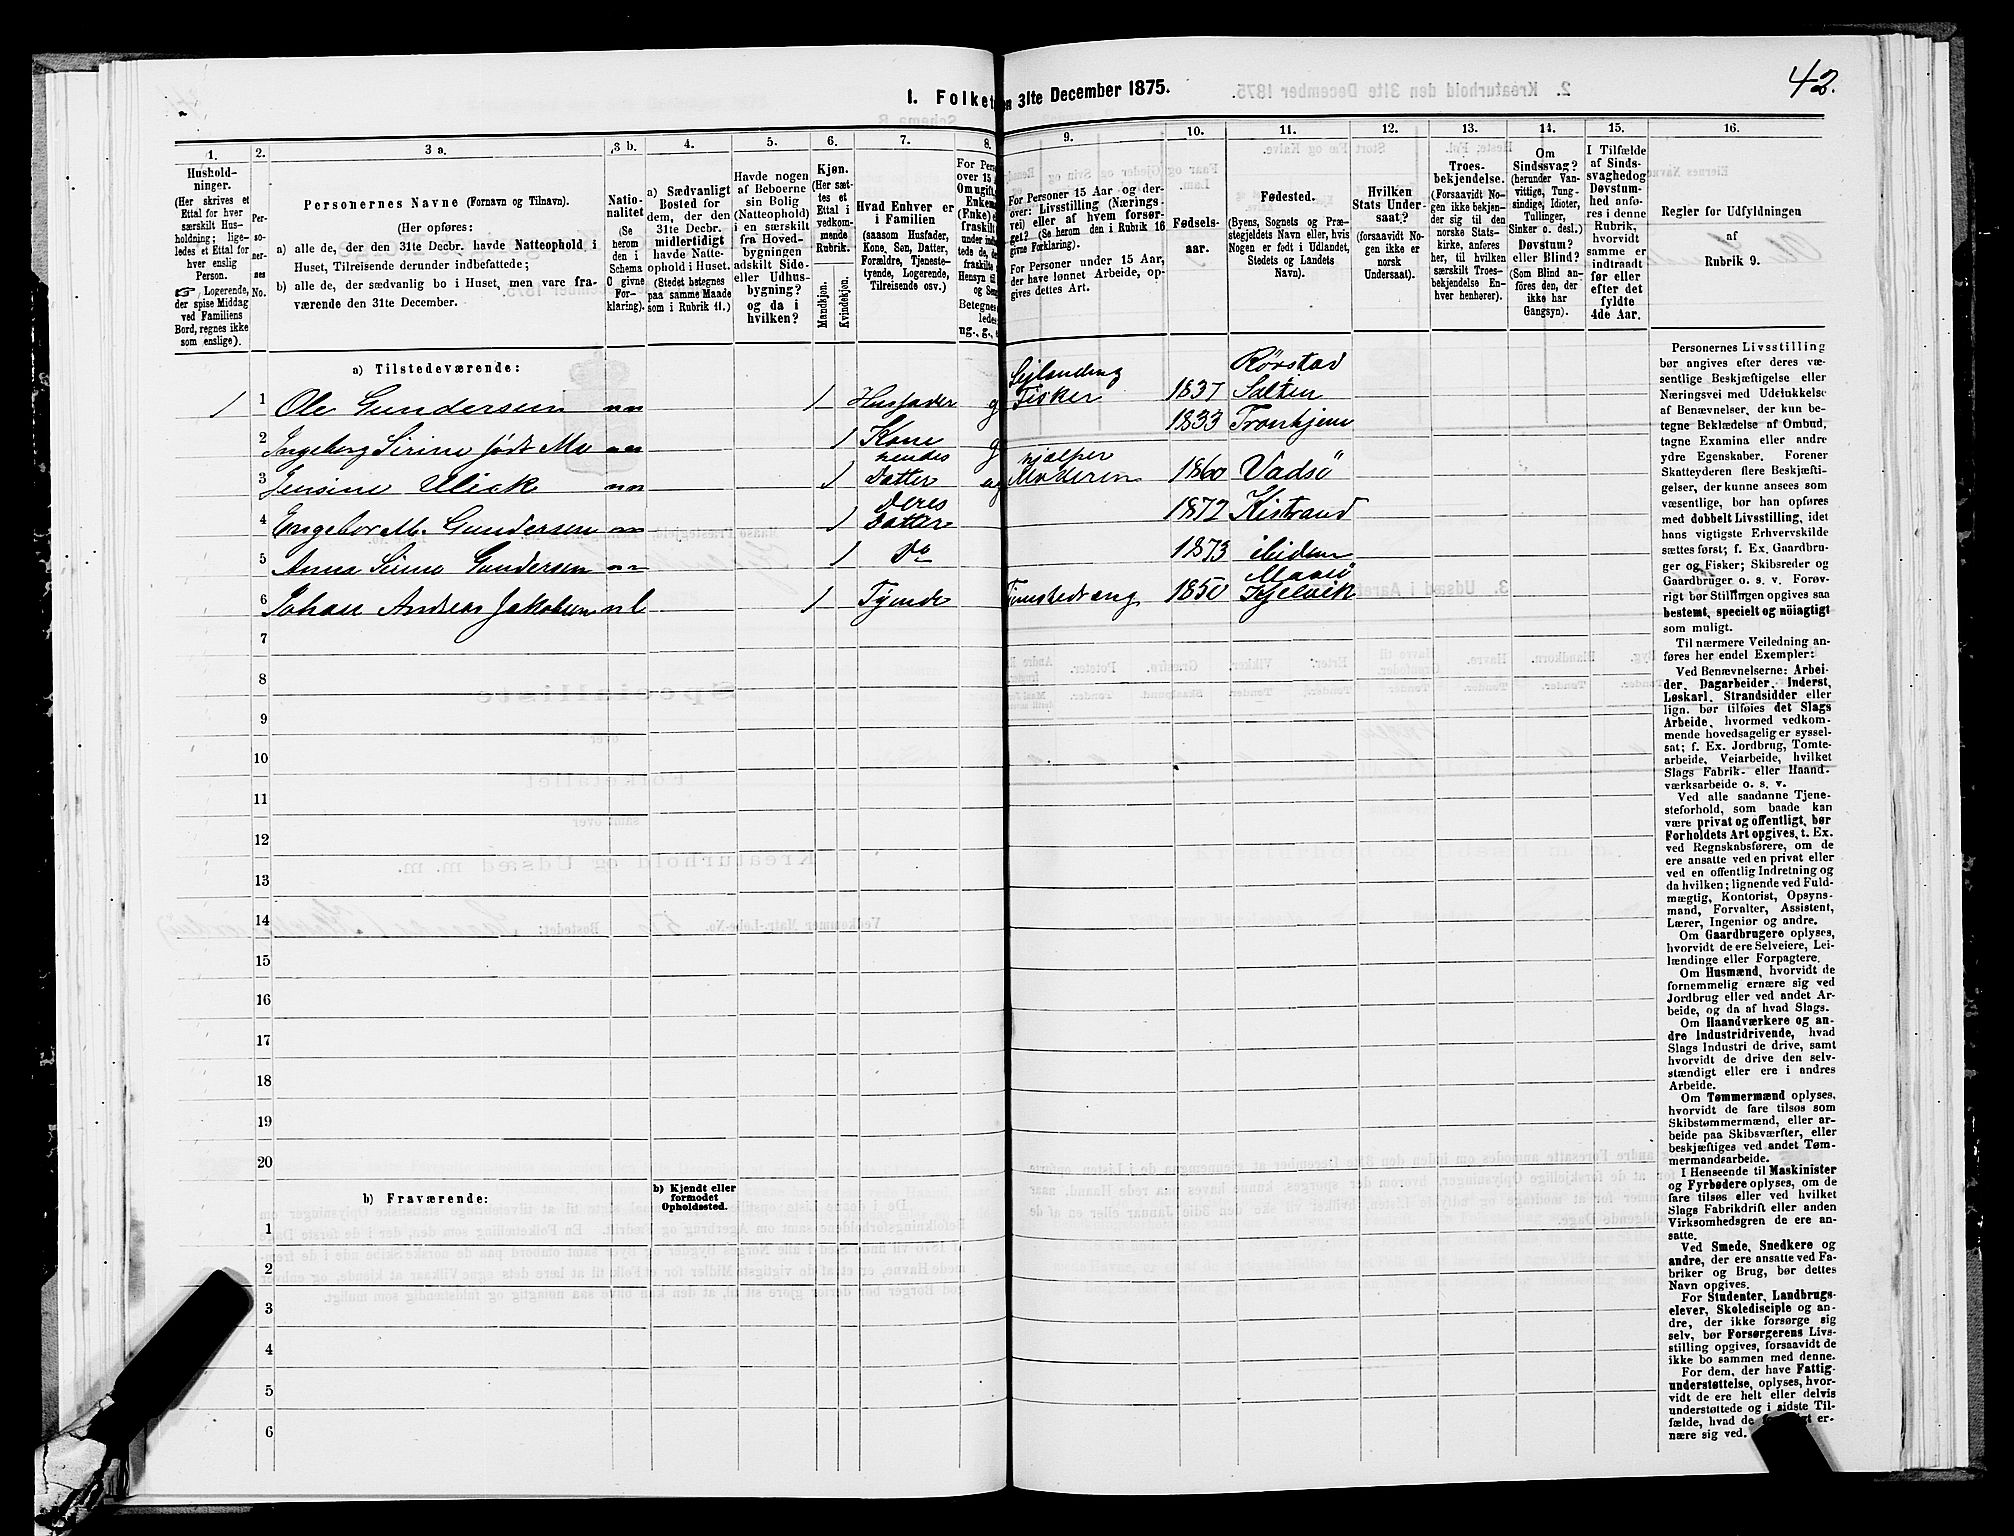 42.
I. Folket
en 31te December 1875.
1.
2.
3 a.
3 b.
4.
5.
6.
7.
8.
9.
10.
11.
12.
13.
14.
15.
16.
Hushold-
ninger.
(Her skrives et
Ettal for hver
særskilt Hus-
holdning; lige-
ledes et Ettal for
hver enslig
Person.
☞ Logerende,
der spise Middag
ved Familiens
Bord, regnes ikke
som enslige).
Per-
so-
ner-
nes
No.
Personernes Navne (Fornavn og Tilnavn).
(Her opføres:
a) alle de, der den 31te Decbr. havde Natteophold i
Huset, Tilreisende derunder indbefattede;
b) alle de, der sædvanlig bo i Huset, men vare fra-
værende den 31te December.
Natio-
nalitet
(Se
herom
den i
Schema
O givne
For-
klaring).
a) Sædvanligt
Bosted for
dem, der den
31te Decbr.
midlertidigt
havde Natte-
ophold i Huset.
(Stedet betegnes
paa samme Maade
som i Rubrik 11.)
Havde nogen
af Beboerne
sin Bolig
(Natteophold)
i en særskilt
fra Hoved-
bygningen
adskilt Side-
eller Udhus-
bygning?
og da i
hvilken?
Kjøn.
(Her sæt-
tes et
Ettal i
vedkom-
mende
Rubrik.
Mandkjøn.
Kvindekjøn.
Hvad Enhver er
i Familien
(saasom Husfader,
Kone, Søn, Datter,
Forældre, Tjeneste-
tyende, Logerende,
Tilreisende osv.)
For Pers
over 15
Om ugift,
Enkem
(Enke) e
fraskilt
For Personer 15 Aar og der-
over: Livsstilling (Nærings-
vei) eller af hvem forsør-
get? (Se herom den i Rubrik 16
givne Forklaring).
For Personer under 15 Aar,
der have lønnet Arbeide, op-
gives dettes Art.
Fødsels-
aar.
Fødested.
(Byens, Sognets og Præ-
stegjeldets Navn eller, hvis
Nogen er født i Udlandet,
Stedets og Landets
Navn).
Hvilken
Stats Under-
saat?
(forsaavidt No-
gen ikke er
norsk
Undersaat).
Troes-
bekjendelse.
(Forsaavidt No-
gen ikke bekjen-
der sig til den
norske Stats-
kirke, anføres
her, til hvilken
særskilt Troes-
bekjendelse En-
hver henhører).
Om
Sindssvag?
(herunder Van-
vittige, Tung-
sindige, Idioter,
Tullinger,
Sinker o. desl.)
Døvstum?
eller Blind?
(Som Blind an-
føres den, der
ikke har
Gangsyn).
I Tilfælde
af Sinds-
svaghed og
Døvstum-
hed anfø-
res i denne
Rubrik,
hvorvidt
samme er
indtraadt
før eller
efter det
fyldte
4de Aar.
Regler for Udfyldningen
af
Rubrik 9.
a) Tilstedeværende:
1 1 Ole Gundersen nn 1 Husfader g Sejlanding Fisker 1837 Rørstad Salten
2 Ingeborg Sirine født Mo nn 1 Kone g 1833 Tronhjem
3 Jensine Ulick nn 1 hendes Datter ug hjælper Moderen 1860 Vadsö
4 Engebor M. Gundersen nn 1 deres Datter 1872 Kistrand
5 Anna Sirine Gundersen nn 1 Do 1873 ibidem
6 Johan Andreas Jakobsen nl 1 Tyende Tjenestedræng 1850 Maasö Kjelvik
7
8
9
10
11
12
13
14
15
16
17
18
19
20
b) Fraværende:
b) Kjendt eller
formodet
Opholdssted.
1
2
3
4
5
6
Personernes Livsstilling
bør angives efter deres væ-
sentlige Beskjæftigelse eller
Næringsvei med Udelukkelse
af Benævnelser, der kun be-
tegne Beklædelse af Ombud,
tagne Examina eller andre
ydre Egenskaber. Forener
Skatteyderen flere Beskjæfti-
gelser, der kunne ansees som
væsentlige, bør han opføres
med dobbelt Livsstilling, idet
hans vigtigste Erhvervskilde
sættes først; f. Ex. Gaardbru-
ger og Fisker; Skibsreder og
Gaardbruger o. s. v. Forøv-
rigt bør Stillingen opgives saa
bestemt, specielt og nöiagtigt
som muligt.
Til nærmere Veiledning an-
føres her endel Exempler:
Ved Benævnelserne: Arbei-
der, Dagarbeider, Inderst,
Løskarl, Strandsidder eller
lign. bør tilføies det Slags
Arbeide, hvormed vedkom-
mende hovedsagelig er syssel-
sat; f. Ex. Jordbrug, Tomte-
arbeide, Veiarbeide, hvilket
Slags Fabrik- eller Haand-
værksarbeide o. s. v.
Ved alle saadanne Tjene-
steforhold, som baade kan
være privat og offentligt, bør
Forholdets Art opgives, t. Ex.
ved Regnskabsførere, om de
ere ansatte ved en privat eller
ved en offentlig Indretning og
da hvilken; lignende ved Fuld-
mægtig, Kontorist, Opsyns-
mand, Forvalter, Assistent,
Lærer, Ingeniør og andre.
Om Gaardbrugere oplyses,
hvorvidt de ere Selveiere, Lei-
lændinge eller Forpagtere.
Om Husmænd, hvorvidt de
fornemmelig ernære sig ved
Jordbrug eller ved andet Ar-
beide, og da af hvad Slags.
Om Haandværkere og an-
dre Industridrivende, hvad
Slags Industri de drive, samt
hvorvidt de drive den selv-
stændigt eller ere i andres
Arbeide.
Om Tømmermænd oplyses,
hvorvidt de fare tilsøs som
Skibstømmermænd, eller ar-
beide paa Skibsværfter, eller
beskjæftiges ved andet Tøm-
mermandsarbeide.
I Henseende til Maskinister
og Fyrbødere oplyses, om de
fare tilsøs eller ved hvilket
Slags Fabrikdrift eller anden
Virksomhedsgren de ere an-
satte.
Ved Smede, Snedkere og
andre, der ere ansatte ved Fa-
briker og Brug, bør dettes
Navn opgives.
For Studenter, Landbrugs-
elever, Skoledisciple og an-
dre, der ikke forsørge sig
selv, bør Forsørgerens Livs-
stilling opgives, forsaavidt de
ikke bo sammen med denne.
For dem, der have Fattig-
understøttelse, oplyses, hvor-
vidt de ere helt eller delvis
understøttede og i sidste Til-
fælde, hvad de er-
nære sig ved.